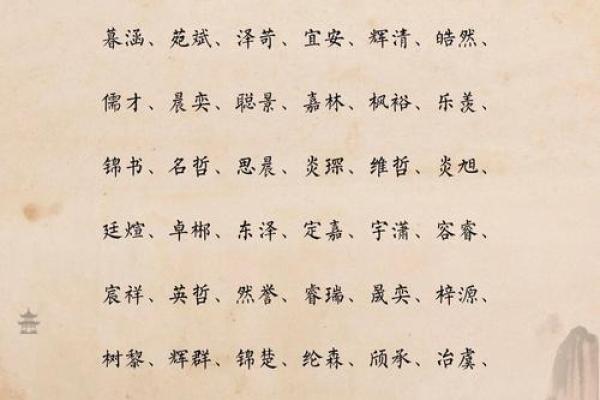 暮涵、苑斌、泽苛、宜安、辉清、皓然、
儒才、晨奕、聪景、嘉林、枫裕、乐羡、
锦书、名哲、思晨、炎琛、维哲、炎旭、
廷煊、卓郴、东泽、定嘉、宇潇、容睿、
宸祥、英哲、然誉、睿瑞、晟奕、梓源、
树黎、辉群、锦楚、纶森、颀承、冶虞、